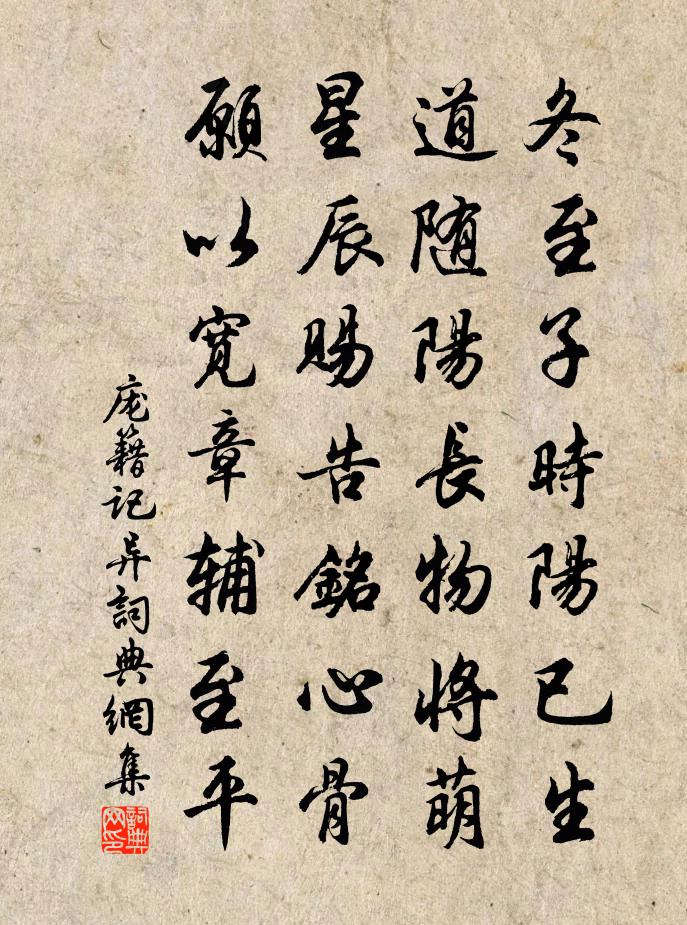 冬至子時陽已生
道随陽長物將萌
星辰賜告銘心骨
願以寬章辅至平
庞籍记异詞典網集
詞典网印